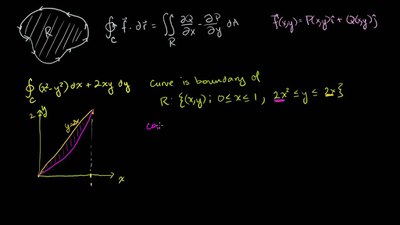 R
∮_C f⃗ · dr⃗ = ∬_R ∂Q/∂x - ∂P/∂y dA
f⃗(x,y) = P(x,y)î + Q(x,y)ĵ
C
∮_C (x²-y²) dx + 2xy dy
curve is boundary of
R: {(x,y); 0 ≤ x ≤ 1, 2x² ≤ y ≤ 2x}
2
y
y=2x
x